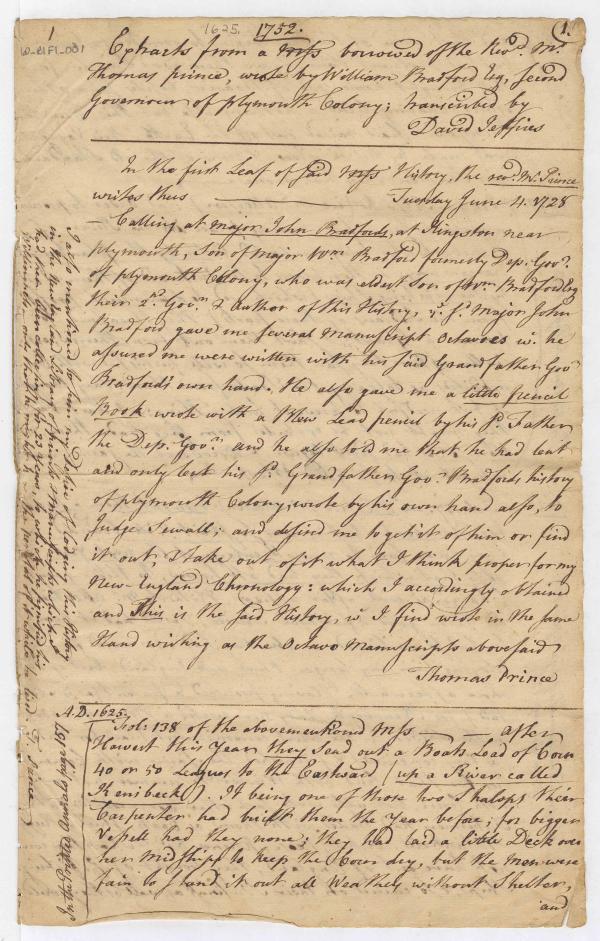 1
1625.
1752.
1.
W-21F1-001
Extracts from a Mss borrowed of the Revd. Mr
Thomas prince, wrote by William Bradford Esq, second
Governour of plymouth Colony; transcribed by
David Jeffries
In the first Leaf of said Mss History, the revd. Mr. Prince
writes thus Tuesday June 4. 1728
— Calling at major John Bradfords, at Kingston near
plymouth, Son of Major Wm. Bradford formerly Dep: Govr.
of plymouth Colony, who was eldest Son of Wm. Bradford Esq
their 2d. Govr. & Author of this History, ye. sd. Major John
Bradford gave me several manuscript octavoes wh. he
assured me were written with his said Grandfather Govr
Bradford's own hand. He also gave me a little pencil
Book wrote with a Blew Lead pencil by his sd. Father
the Dep: Govr. and he also told me that he had lent
and only lent his sd. Grandfather Govr. Bradfords history
of plymouth Colony, wrote by his own hand also, to
Judge Sewall; and desired me to get it of him or find
it out, & take out of it what I think proper for my
New-England Chronology: which I accordingly obtained
and This is the said History, wh. I find wrote in the same
Hand writing as the Octavo Manuscripts abovesaid
Thomas Prince
I also mentioned to him my Desire of lodging this History
in the New England Library of prints & manuscripts which I
had been then collecting for 23 years, to which he signified his
Willingness only that he might the perusal of it while he lived T. Prince
A.D. 1625.
Fol: 138 of the abovementioned Mss — after
Harvest this Year they send out a Boats Load of Corn
40 or 50 Leagues to the Eastward (up a River called
Kenibeck). it being one of those two Shalops their
Carpenter had built them the Year before; for bigger
Vessell had they none; they had laid a little Deck over
her Midships to keep the Corn dry, but the men were
fain to stand it out all Weathers without Shelter,
and